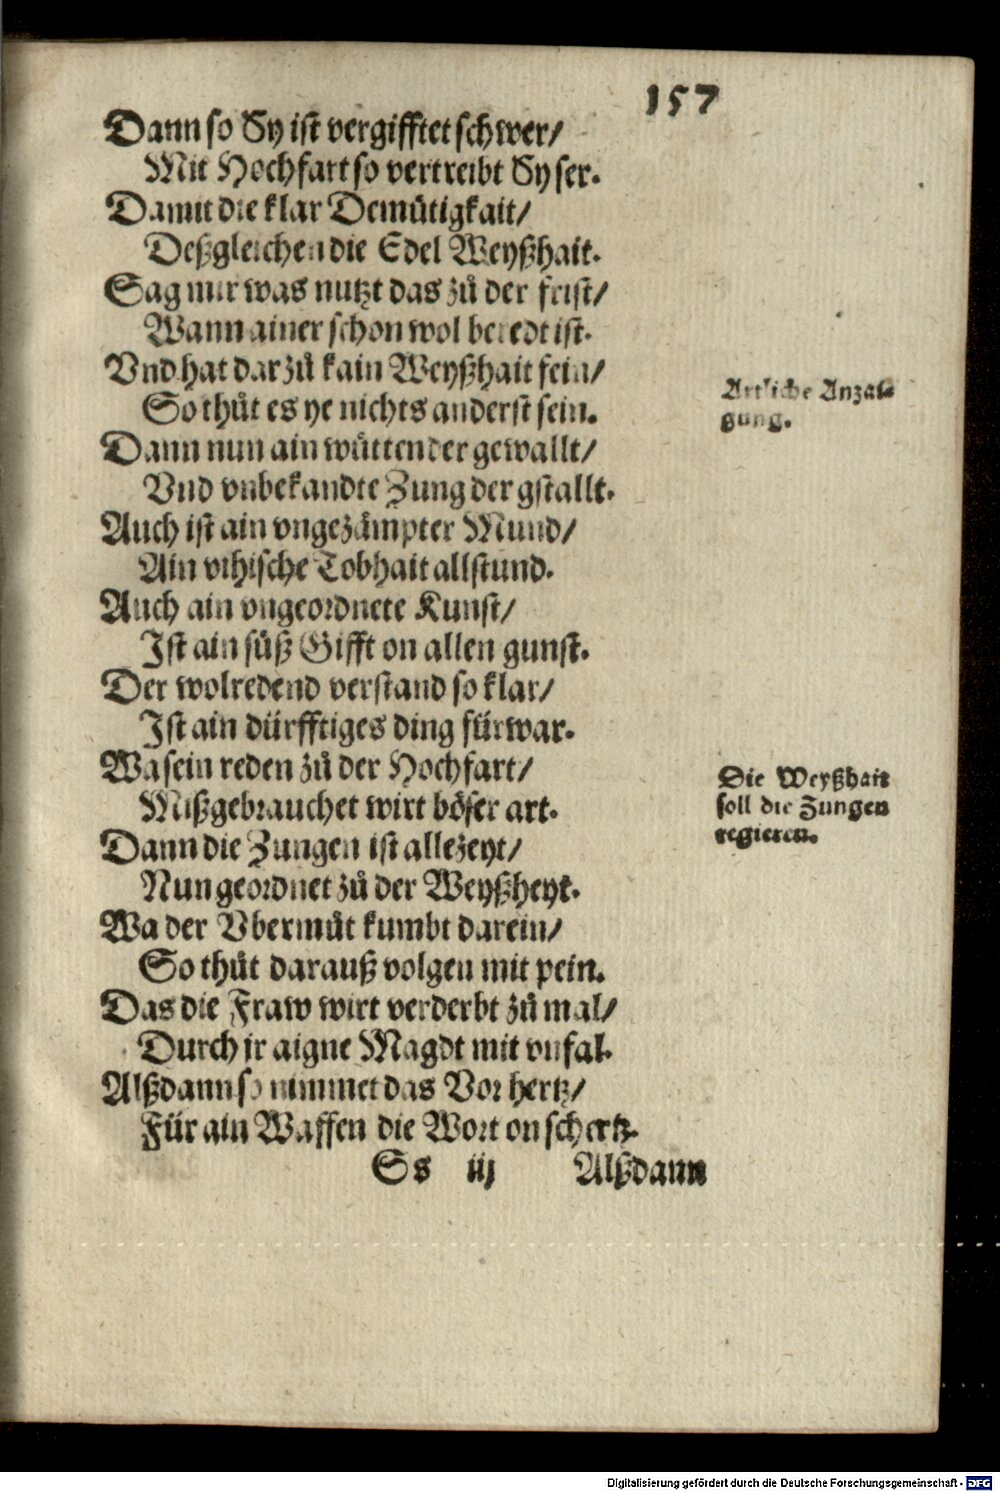 157
Dann so Sy ist vergifftet schwer/
Mit Hochfart so vertreibt Sy ser.
Damit die klar Demütigkait/
Deßgleichen die Edel Weyßhait.
Sag nur was nutzt das zů der frist/
Wann ainer schon wol beredt ist.
Vnd hat dar zů kain Weyßhait fein/
So thůt es ye nichts anderst sein.
Dann nun ain wüttender gewallt/
Vnd vnbekandte Zung der gstallt.
Auch ist ain vngezämpter Mund/
Ain vihische Tobhait allstund.
Auch ain vngeordnete Kunst/
Ist ain süß Gifft on allen gunst.
Der wolredend verstand so klar/
Ist ain dürfftiges ding fürwar.
Wa sein reden zů der Hochfart/
Mißgebrauchet wirt böser art.
Dann die Zungen ist allezeyt/
Nun geordnet zů der Weyßheyt.
Wa der Vbermůt kumbt darein/
So thůt darauß volgen mit pein.
Das die Fraw wirt verderbt zů mal/
Durch jr aigne Magdt mit vnfal.
Alßdann so nimmet das Vor hertz/
Für ain Waffen die Wort on schertz.
Ss iij Alßdann
Artliche Anzai-
gung.
Die Weyßhait
soll die Zungen
regieren.
Digitalisierung gefördert durch die Deutsche Forschungsgemeinschaft - DFG